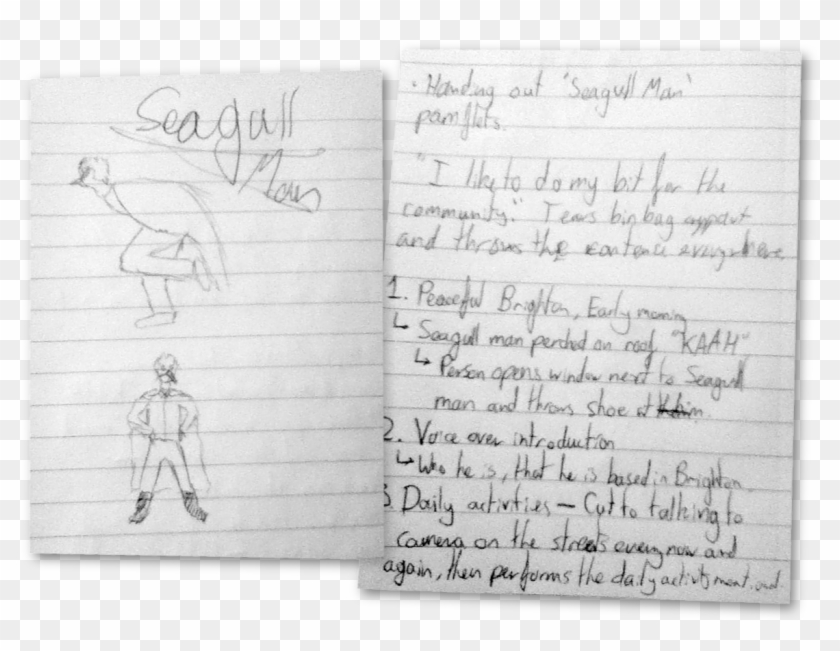 Seagull
Man
· Handing out 'Seagull Man'
pamflets.
"I like to do my bit for the
community." Tears bin bag appart
and throws the contence everywhere.
1. Peaceful Brighton, Early morning
↳ Seagull man perched on roof, "KAAH"
↳ Person opens window next to Seagull
man and throws shoe at him.
2. Voice over introduction
↳ Who he is, that he is based in Brighton.
3. Daily activities — Cut to talking to
camera on the streets every now and
again, then performs the daily activity